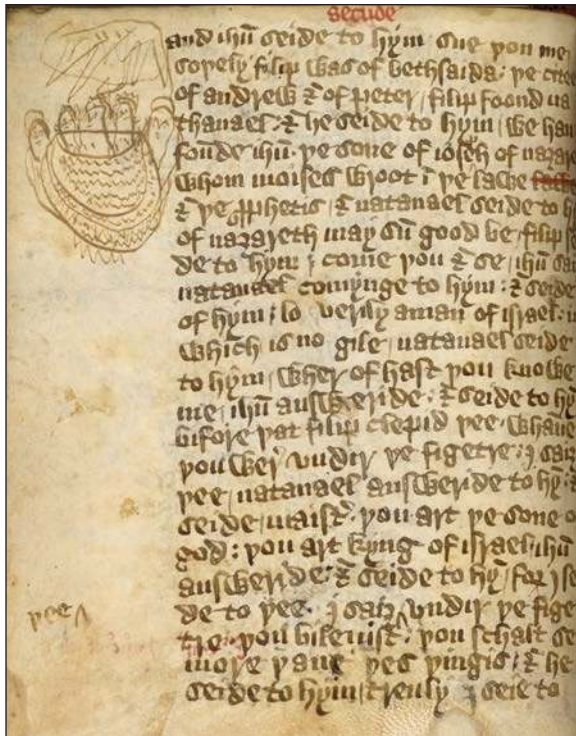 secūde
and ihū seide to hym sue þou me
soþely filip was of bethsaida: þe citee
of andrew & of peter / filip foond na
thanael: & he seide to hym / we han
founde ihū. þe sone of ioseþh of nazare
whom moises wroot ī þe lawe
& þe ꝓphetis / & natanael seide to h
of nazareth may sū good be / filip se
de to hym ; come þou & se / ihū saiȝ
natanael comynge to hym : & seide
of hym ; lo verily aman of israel: ī
which is no gile / natanael seide
to hym / wher of hast þou knowe
me / ihū answeride: & seide to hȳ
bifore þat filip clepid þee. whāne
þou wer̄ vndir þe figetre: ȷ saiȝ
þee / natanael answeride to hȳ: &
seide / maistr̄. þou art þe sone o
god: þou art kyng of israel / ihū
answeride: & seide to hȳ / for ȷ sei
de to þee. ȷ saiȝ ^ vndir þe fige
þee ^
tre: þou bileuist / þou schalt se
more þane þes þingis: & he
seide to hym / treuly ȷ seie to